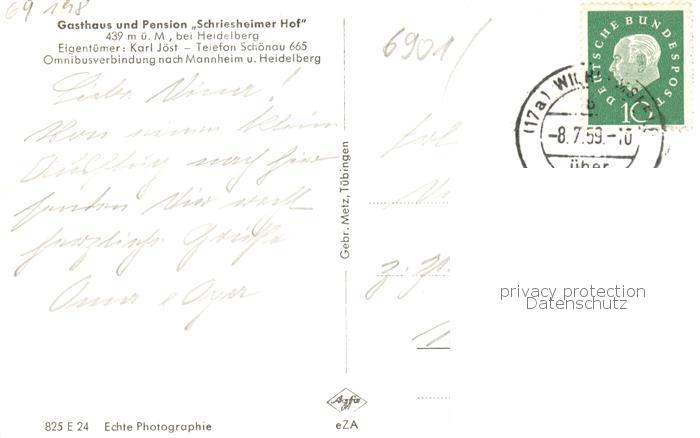 69 198
Gasthaus und Pension „Schriesheimer Hof"
439 m ü. M., bei Heidelberg
Eigentümer: Karl Jöst - Telefon Schönau 665
Omnibusverbindung nach Mannheim u. Heidelberg
6901/
DEUTSCHE BUNDESPOST
10
(17a) WILHELMSFELD
b
-8.7.59.-10
über
Liebe
Von einem kleinen
Ausflug nach hier
senden Dir recht
herzliche Grüße
Oma e Opa
z. Zt.
Gebr. Metz, Tübingen
privacy protection
Datenschutz
Agfa
eZA
825 E 24 Echte Photographie